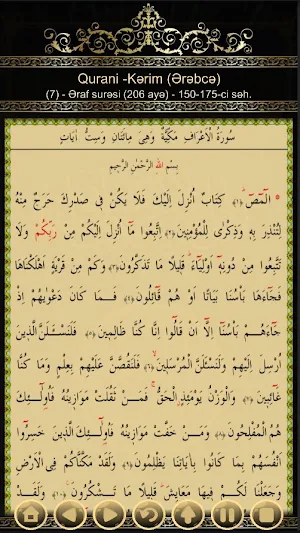 Qurani -Kərim (Ərəbcə)
(7) - Əraf surəsi (206 ayə) - 150-175-ci səh.
سُورَةُ الْاَعْرَافِ مَكِّيَّةٌ وَهِىَ مِائَتَانِ وَسِتُّ اٰيَاتٍ
بِسْمِ اللهِ الرَّحْمٰنِ الرَّحٖيمِ
الٓمٓصٓ ﴿١﴾ كِتَابٌ اُنْزِلَ اِلَيْكَ فَلَا يَكُنْ فٖى صَدْرِكَ حَرَجٌ مِنْهُ
لِتُنْذِرَ بِهٖ وَذِكْرٰى لِلْمُؤْمِنٖينَ ﴿٢﴾ اِتَّبِعُوا مَٓا اُنْزِلَ اِلَيْكُمْ مِنْ رَبِّكُمْ وَلَا
تَتَّبِعُوا مِنْ دُونِهٖٓ اَوْلِيَٓاءَ قَلٖيلًا مَا تَذَكَّرُونَ ﴿٣﴾ وَكَمْ مِنْ قَرْيَةٍ اَهْلَكْنَاهَا
فَجَٓاءَهَا بَاْسُنَا بَيَاتًا اَوْ هُمْ قَٓائِلُونَ ﴿٤﴾ فَمَا كَانَ دَعْوٰيهُمْ اِذْ
جَٓاءَهُمْ بَاْسُنَٓا اِلَّٓا اَنْ قَالُٓوا اِنَّا كُنَّا ظَالِمٖينَ ﴿٥﴾ فَلَنَسْـَٔلَنَّ الَّذٖينَ
اُرْسِلَ اِلَيْهِمْ وَلَنَسْـَٔلَنَّ الْمُرْسَلٖينَ ﴿٦﴾ فَلَنَقُصَّنَّ عَلَيْهِمْ بِعِلْمٍ وَمَا كُنَّا
غَٓائِبٖينَ ﴿٧﴾ وَالْوَزْنُ يَوْمَئِذٍ الْحَقُّ فَمَنْ ثَقُلَتْ مَوَازٖينُهُ فَاُولٰٓئِكَ
هُمُ الْمُفْلِحُونَ ﴿٨﴾ وَمَنْ خَفَّتْ مَوَازٖينُهُ فَاُولٰٓئِكَ الَّذٖينَ خَسِرُٓوا
اَنْفُسَهُمْ بِمَا كَانُوا بِاٰيَاتِنَا يَظْلِمُونَ ﴿٩﴾ وَلَقَدْ مَكَّنَّاكُمْ فِى الْاَرْضِ
وَجَعَلْنَا لَكُمْ فٖيهَا مَعَايِشَ قَلٖيلًا مَا تَشْكُرُونَ ﴿١٠﴾ وَلَقَدْ